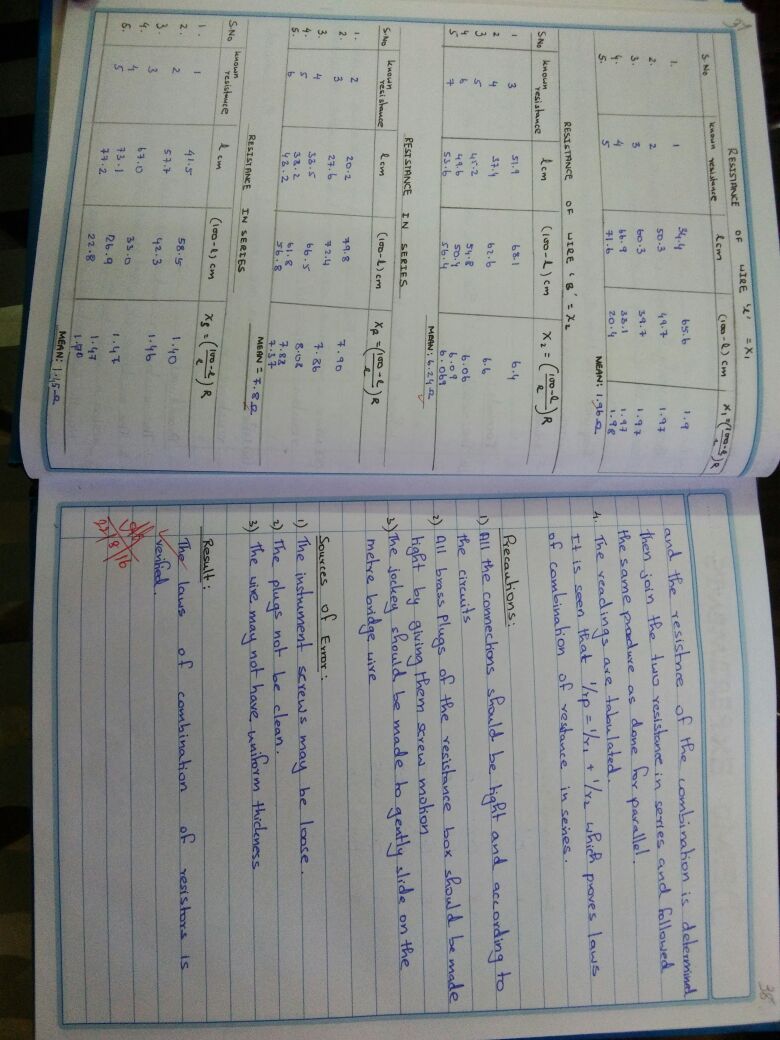 37
RESISTANCE OF WIRE 'A' = X1
S.No known resistance l cm (100-l) cm X1 = (100-l/l)R
1. 1 34.4 65.6 1.9
2. 2 50.3 49.7 1.97
3. 3 60.3 39.7 1.97
4. 4 66.9 33.1 1.97
5. 5 71.6 28.4 1.98
MEAN: 1.96Ω
RESISTANCE OF WIRE 'B' = X2
S.No known resistance l cm (100-l) cm X2 = (100-l/l)R
1 3 31.9 68.1 6.4
2 4 37.4 62.6 6.6
3 5 45.2 54.8 6.06
4 6 49.6 50.4 6.09
5 7 53.6 56.4 6.069
MEAN: 6.24Ω
RESISTANCE IN SERIES
S.No known resistance l cm (100-l) cm Xp = (100-l/l)R
1. 2 20.2 79.8 7.90
2. 3 27.6 72.4 7.86
3. 4 33.5 66.5 8.08
4. 5 38.2 61.8 7.88
5. 6 43.2 56.8 7.37
MEAN = 7.8Ω
RESISTANCE IN SERIES
S.No known resistance l cm (100-l) cm Xs = (100-l/l)R
1. 1 41.5 58.5 1.40
2. 2 57.7 42.3 1.46
3. 3 67.0 33.0 1.47
4. 4 73.1 26.9 1.47
5. 5 77.2 22.8 1.40
MEAN: 1.45Ω
38
and the resistnce of the combination is determined
then join the two resistance in series and followed
the same produre as done for parallel.
4. The readings are tabulated.
It is seen that 1/rp = 1/r1 + 1/r2 which proves laws
of combination of resistance in seires.
Precautions:
1) All the connections should be tight and according to
the circuits
2) All brass plugs of the resistance box should be made
tight by giving them screw motion
3) The jockey should be made to gently slide on the
metre bridge wire
Sources of Error:
1) The instrument screws may be loose.
2) The plugs not be clean.
3) The wire may not have uniform thickness
Result:
The laws of combination of resistors is
verified
23/8/16